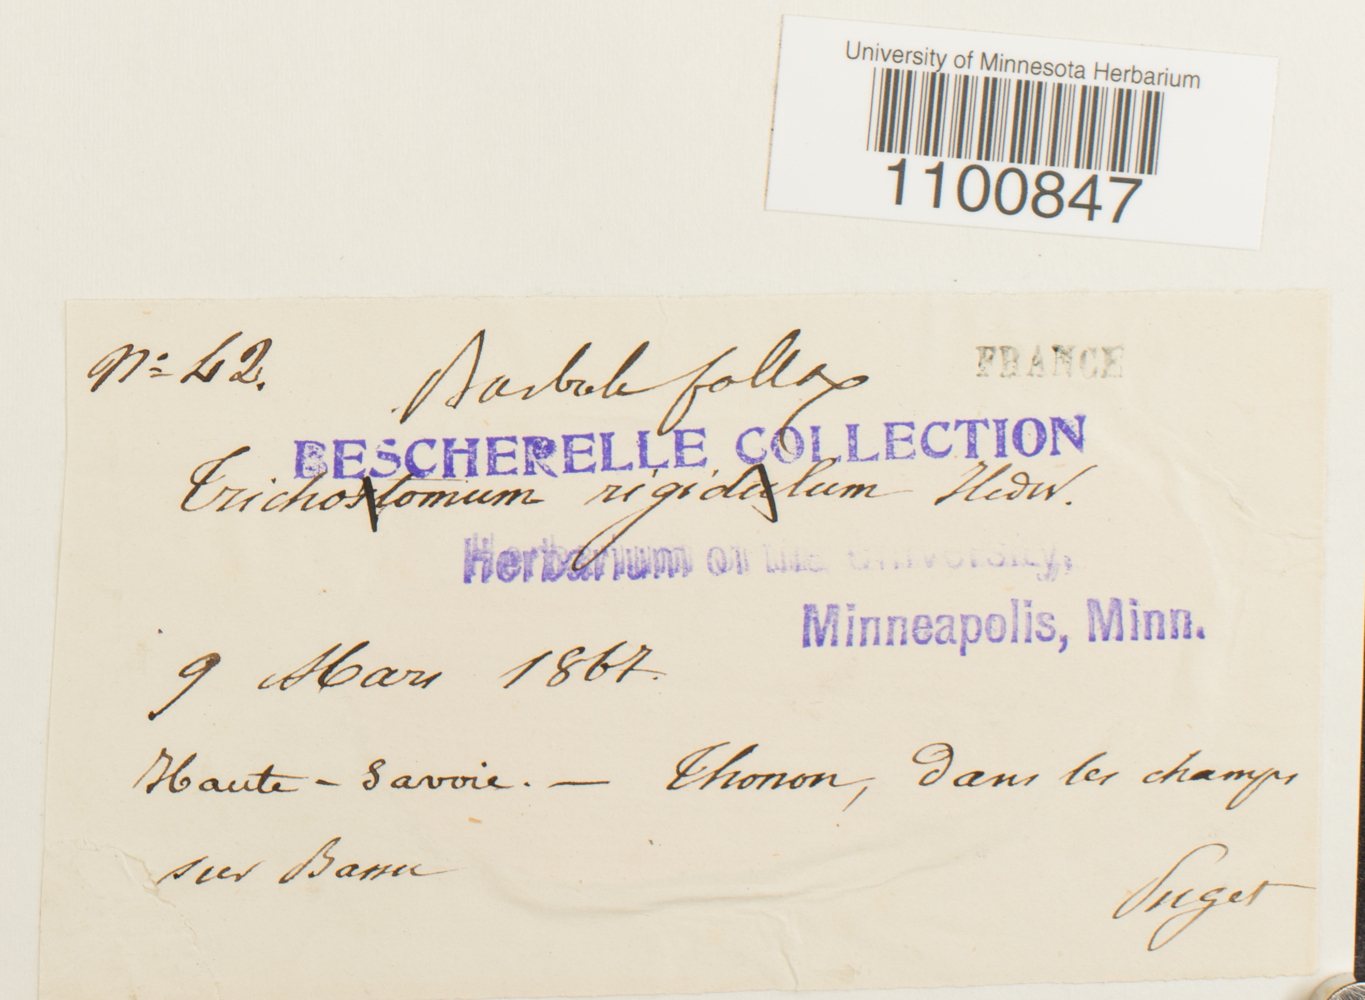 University of Minnesota Herbarium
1100847
No= 42.
Barbula fallax
FRANCE
BESCHERELLE COLLECTION
Trichostomum rigidulum Hedw.
Herbarium of the University,
Minneapolis, Minn.
9 Mars 1867.
Haute-Savoie. — Thonon, dans les champs
sur
Puget